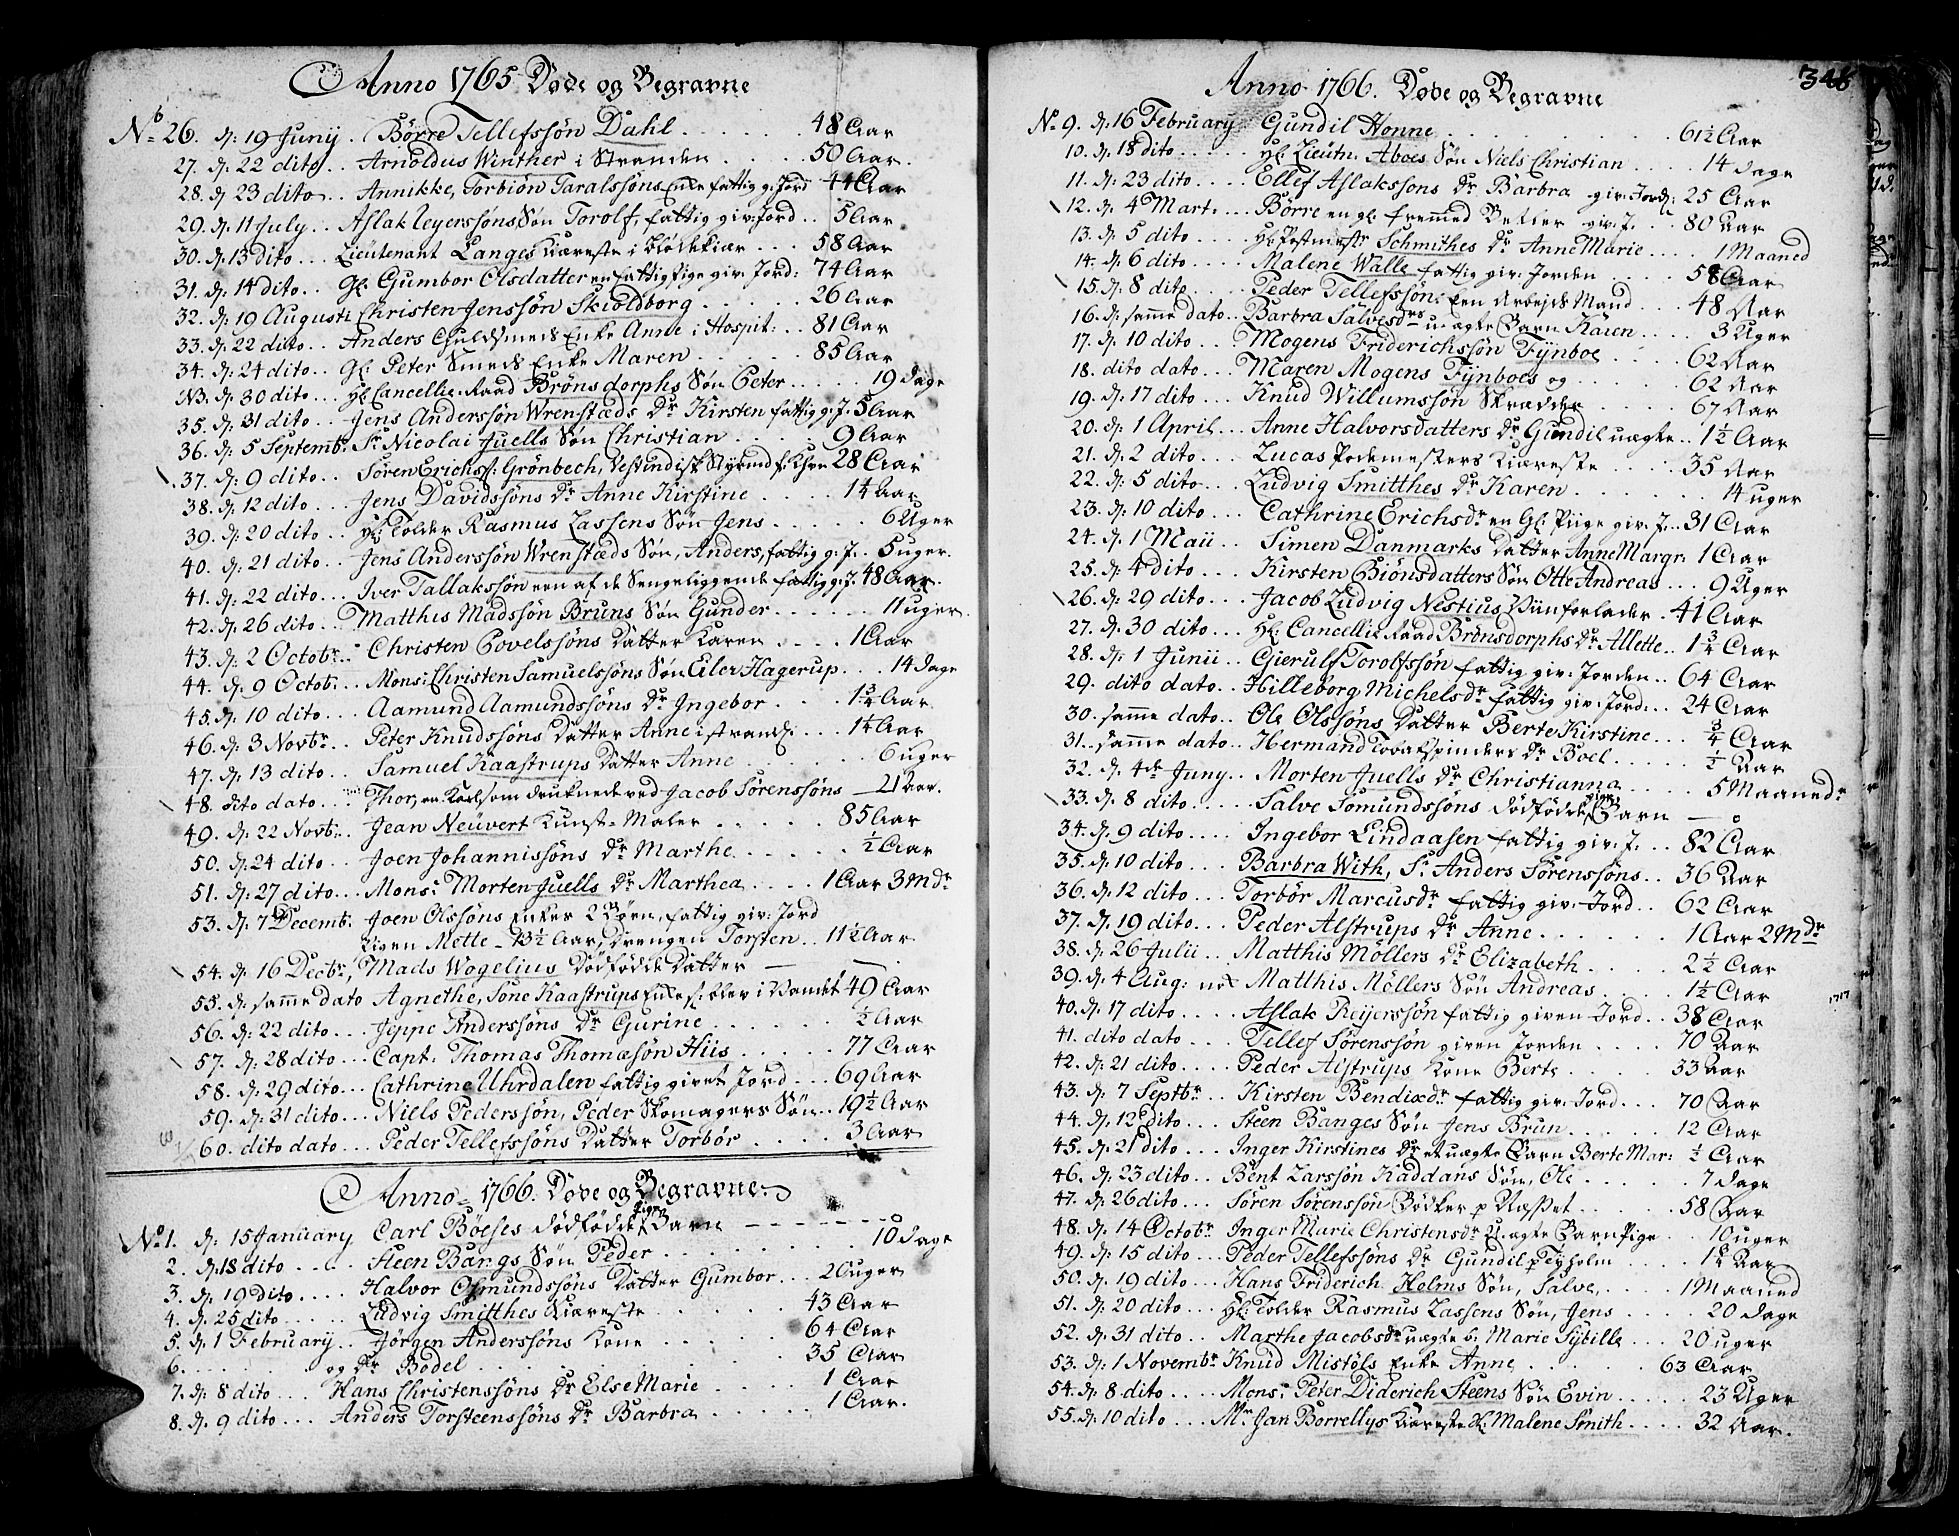 Anno 1765 Døde og Begravne
No 26. d: 19 Junij . Børre Tellefssøn Dahl . . . . . . 48 Aar
27. d: 22 dito . . Arnoldus Winther i Stranden . . . . 50 Aar.
28. d 23 dito . . Annikke, Torbiøn Taralssøns Enke fattig g: Jord 44 Aar
29. d. 11 July . . Aslak Reyerssøns Søn Torolf, fattig giv: Jord . . 5 Aar
30. d. 13 dito . . . Lieutenant Langes Kiæreste i Blødekiær . . . 58 Aar
31. d. 14 dito . . Gl: Gumbor Olsdatter en fattig Pige giv: Jord: 74 Aar
32. d. 19 Augusti Christen Jenssøn Skioldborg . . . . . 26 Aar
33. d. 22 dito . . Anders Guldsmeds Enke Anne i Hospit: . . 81 Aar
34. d: 24 dito . . Gl: Peter Smeds Enke Maren . . . . . 85 Aar
NB. d: 30 dito . . . Hr Cancellie-Raad Brønsdorphs Søn Peter . . . . . 19 dage
35. d. 31 dito . . Jens Anderssøn Wrenstæds Dr Kirsten fattig g: J. 5 Aar
36. d: 5 Septemb: Sr Nicolai Juells Søn Christian . . . . . 9 Aar
37. d: 9 dito . . Søren Erichs: Grønbech, Vestindisk Styrmd f: Khvn 28 Aar
38. d. 12 dito . . Jens Davidssøns Dr Anne Kirstine . . . . 1¼ Aar
39. d: 20 dito . . Hr Tolder Rasmus Lassens Søn Jens . . . . . 6 Uger
40. d: 21 dito . . Jens Anderssøn Wrenstæds Søn, Anders, fattig g: J. . 5 uger.
41. d: 22 dito . . Iver Tallakssøn een af de Sengeliggende fattig g: J. 48 Aar.
42. d: 26 dito . . Matthis Madssøn Bruns Søn Gunder . . . . . . 11 uger.
43. d: 2 Octobr . . Christen Povelssøns Datter Karen . . . . 1 Aar
44. d. 9 Octob: . . Mons: Christen Samuelssøns Søn Eiler Hagerup . . . 14 dage
45. d: 10 dito . . . Aamund Aamundssøns Dr Ingebor . . . . 1¼ Aar
46. d: 3 Novbr . . Peter Knudssøns Datter Anne i strand: . . . 1¼ Aar
47. d. 13 dito . . Samuel Kaastrups Datter Anne . . . . . . . 6 uger
48. dito dato . . . Thor, en Karl som druknede ved Jacob Sørenssøns — 21 Aar.
49. d: 22 Novb: . . Jean Neüvert Kunst-Maler . . . . . 85 Aar
50. d: 24 dito . . Joen Johannissøns Dr Marthe . . . . . . ½ Aar
51. d: 27 dito . . Mons: Morten Juells Dr Marthea . . . . 1 Aar 3 Mdr
53. d: 7 Decemb: Joen Olssøns Enkes 2 Børn, fattig giv: Jord
Pigen Mette - 13½ Aar, Drengen Torsten . . 11½ Aar
54. d. 16 Decbr, Mads Wogelius Dødfødde Datter — — .
55. d: samme dato Agnethe, Søne Kaastrups Enke f: blev i Vandet 49 Aar
56. d: 22 dito . . Jeppe Anderssøns Dr Gurine . . . . . . . ½ Aar
57. d. 28 dito . . . Capt: Thomas Thomæsøn Hiis . . . . . 77 Aar
58. d. 29 dito . . . Cathrine Uhrdalen fattig givet Jord . . . 69 Aar
59. d: 31 dito . . . Niels Pederssøn, Peder Skomagers Søn . . 19½ Aar
60. dito dato . . . Peder Tellefssøns Datter Torbør . . . . . 3 Aar
Anno 1766. Døde og Begravne.
No 1. d: 15 January Carl Böeses dødfødde Pige Barn — — — — — — 0
2. d. 18 dito . . . . . Steen Bangs Søn Peder . . . . . . . 10 dage
3. d. 19 dito . . . . Halvor Osmundssøns Datter Gumbor . . . 20 uger
4. d. 25 dito . . . . Ludvig Smitthes Kiæreste . . . . . . . 43 Aar
5. d. 1 February . . Jørgen Anderssøns Kone . . . . . . 64 Aar
6. . . . . . . og Dr Bodel . . . . . . . . . . . 35 Aar
7. d: 8 dito . . . Hans Christenssøns Dr Else Marie . . . . . 1 Aar
8. d. 9 dito . . . Anders Torsteenssøns Dr Barbra . . . . . . 1 Aar.
346
Anno 1766. Døde og Begravne
No 9. d. 16 February Gundil Honne . . . . . . . . 61½ Aar
10. d. 18 dito . . . . . Hr Lieutn: Aboes Søn Niels Christian . . . . 14 dage
11. d: 23 dito . . . . Ellef Aslakssøns Dr Barbra giv: Jord: 25 Aar
12. d. 4 Mart: . . . Børre en gl: fremmed Betler giv: J. . . 80 Aar
13. d. 5 dito . . . . Hr Postmestr Schmithes Dr Anne Marie . . . . 1 Maaned
14. d: 6 dito . . . . Malene Walle fattig giv: Jorden . . . . . 58 Aar
15. d: 8 dito . . . . Peder Tellefssøn, Een Arbejds Mand . . . 48 Aar
16. d: samme dato . Barbra Salvesdrs u-ægte Barn Karen . . . . 3 Uger
17. d: 10 dito . . . Mogens Friderichssøn Fÿnboe . . . . . 62 Aar
18. dito dato . . . Maren Mogens Fÿnboes og . . . . . . 62 Aar
19. d. 17 dito . . . Knud Willumssøn Skrædder . . . . . 67 Aar
20. d: 1 April . . . Anne Halvorsdatters Dr Gundil uægte . . 1½ Aar
21. d: 2 dito . . . . Lucas Podemesters Kiæreste . . . . . 35 Aar
22. d. 5 dito . . . Ludvig Smitthes Dr Karen . . . . . . . 14 uger
23. d. 10 dito . . . Cathrine Erichsdr en Gl: Pige giv: J. . . 31 Aar
24. d. 1 Maii . . . Simen Danmarks Datter Anne Margr: 1 Aar
25. d: 4 dito . . . . Kirsten Biønsdatters Søn Otte Andreas . . . 9 Uger
26. d: 29 dito . . . Jacob Ludvig Nestius Viinforlader . 41 Aar
27. d. 30 dito . . . Hr: Cancellie Raad Brönsdorphs Dr Allette . . 1¾ Aar
28. d: 1 Junii . . Gierulf Torolfssøn fattig giv: Jorden . . 64 Aar
29. dito dato . . Hilleborg Michelsdr fattig giv: Jord: . . 24 Aar
30. samme dato . . Ole Olssøns Datter Berte Kirstine . . . ¾ Aar
31. samme dato . . Hermand Tobakspinders Dr Boel . . . . . ½ Aar
32. d. 4de Juny . . Morten Juells Dr Christianna . . . . . 5 Maaneder
33. d. 8 dito . . . . . Salve Somundssøns dødfødde Barn — 0
34. d. 9 dito . . . . Ingebor Lindaasen fattig giv: J. . . . 82 Aar
35. d. 10 dito . . . Barbra With, Sr Anders Sørenssøns . . 36 Aar
36. d. 12 dito . . . Torbør Marcusdr fattig giv: Jord . . 62 Aar
37. d. 19 dito . . . Peder Alstrups Dr Anne . . . . . . . 1 Aar 2 Mdr
38. d. 26 Julii . . Matthis Møllers Dr Elizabeth . . . . . 2½ Aar
39. d. 4 Aug: not Matthis Møllers Søn Andreas . . . . . 1½ Aar
40. d. 17 dito . . . Aslak Reijerssøn fattig given Jord . . 38 Aar
41. dito dato . . Tellef Sørenssøn given Jorden . . . . 70 Aar
42. d. 21 dito . . . . Peder Alstrups Kone Berte . . . . . 33 Aar
43. d. 7 Septbr . . Kirsten Bendixdr fattig giv: Jord . . . 70 Aar
44. d. 12 dito . . . Steen Banges Søn Jens Brun . . . . . . 12 Aar
45. d. 21 dito . . . Inger Kirstines Dr et uægte Barn Berte Mar: ½ Aar
46. d. 23 dito . . . Bent Larssøn Kaddans Søn, Ole . . . . . . 7 dage
47. d. 26 dito . . . Søren Sørenssøn Bødker p Næsset . . . . . 58 Aar
48. d: 14 Octobr Inger Marie Christensdr u-ægte Barn Pige . 10 uger
49. d: 15 dito . . . Peder Tellefssøns Dr Gundil p Tÿholm . . . . . 1¼ Aar
50. d: 19 dito . . . Hans Friderich Holms Søn, Salve, . . . . 1 Maaned
51. d: 20 dito . . . Hr: Tolder Rasmus Lassens Søn, Jens . . . . 20 dage
52. d. 31 dito . . . Marthe Jacobsdr uægte b. Marie Sybille . . . 20 uger
53. d: 1 Novembr Knud Mistöls Enke Anne . . . . . . . 63 Aar
54. d. 8 dito . . . . Mons: Peter Diderich Steens Søn Evin . . . . . 23 Uger
55. d: 10 dito . . . Mr Jan Borrellys Kiæreste Hl Malene Smith . . . . 32 Aar.